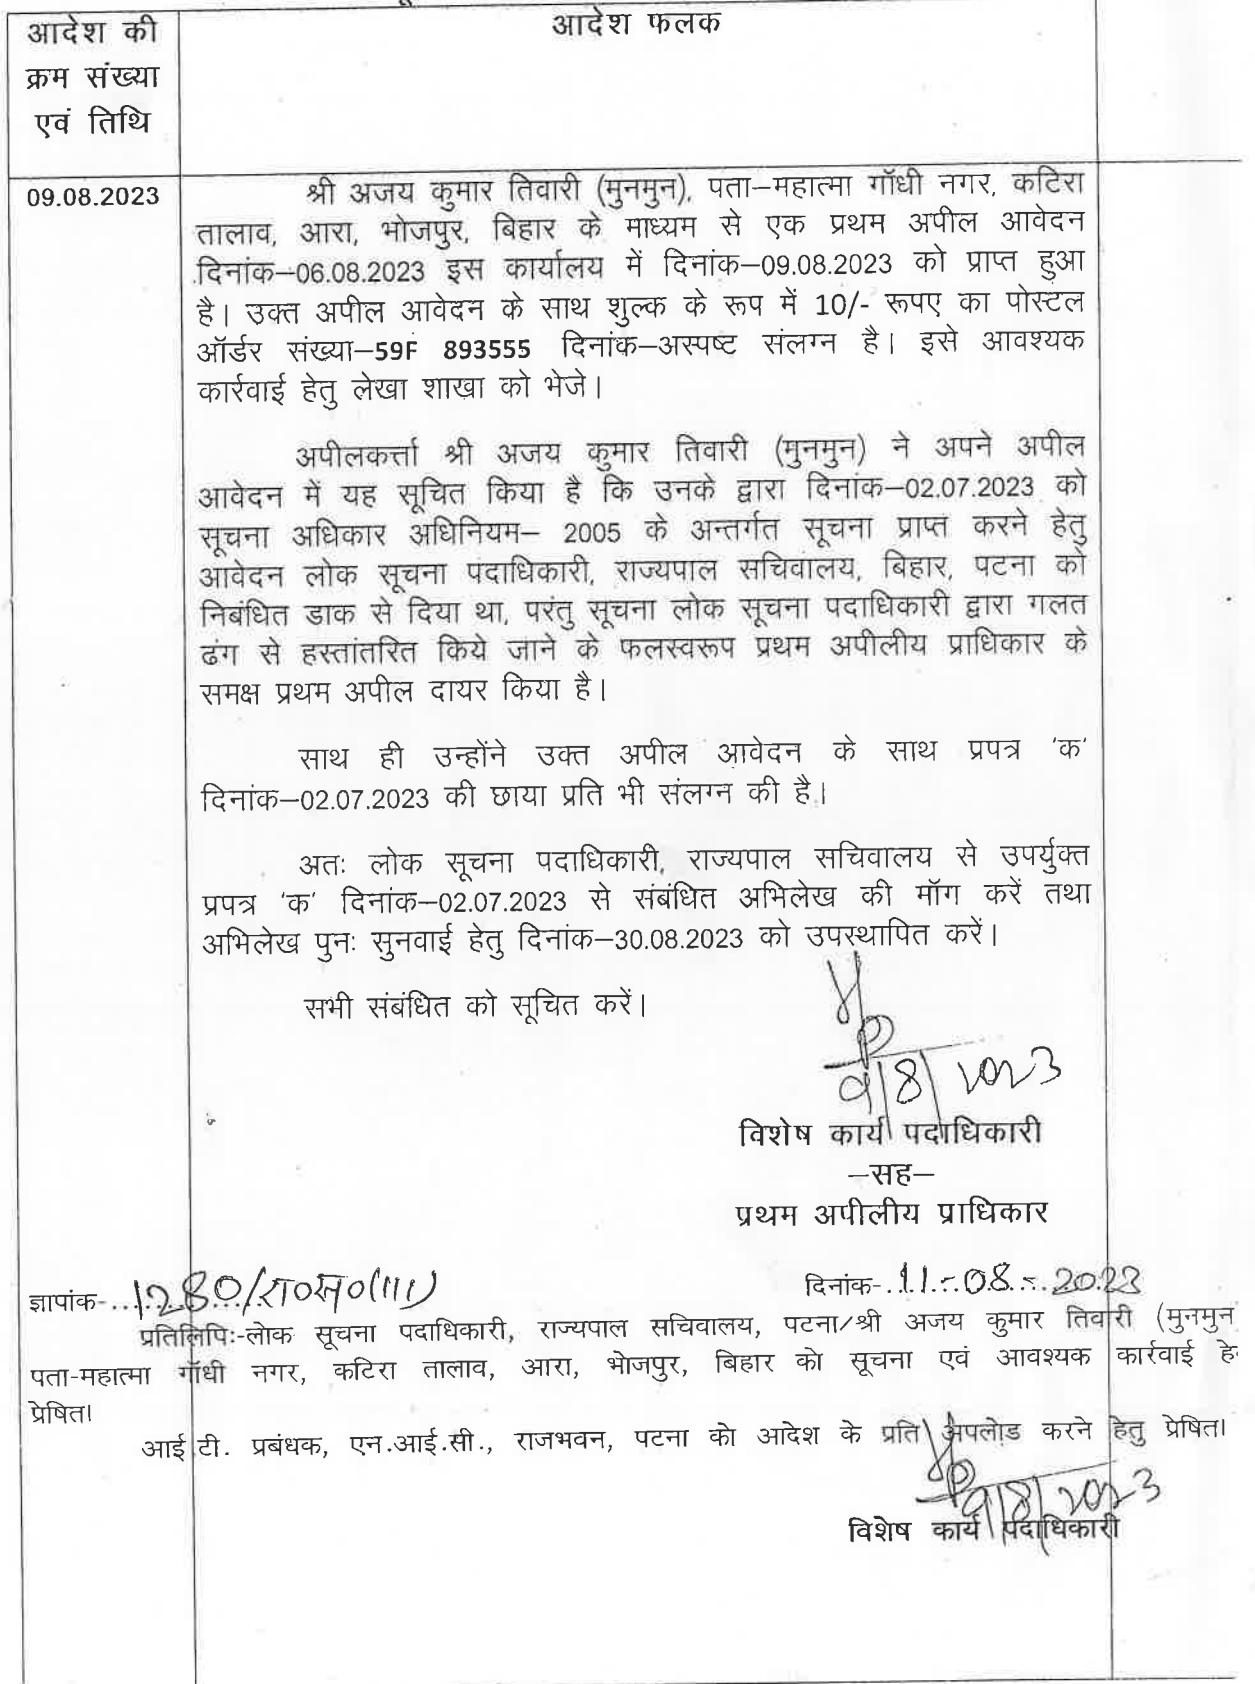 आदेश की
क्रम संख्या
एवं तिथि
आदेश फलक
09.08.2023
श्री अजय कुमार तिवारी (मुनमुन), पता–महात्मा गॉधी नगर, कटिरा
तालाव, आरा, भोजपुर, बिहार के माध्यम से एक प्रथम अपील आवेदन
दिनांक–06.08.2023 इस कार्यालय में दिनांक–09.08.2023 को प्राप्त हुआ
है। उक्त अपील आवेदन के साथ शुल्क के रूप में 10/- रूपए का पोस्टल
ऑर्डर संख्या–59F 893555 दिनांक–अस्पष्ट संलग्न है। इसे आवश्यक
कार्रवाई हेतु लेखा शाखा को भेजे।
अपीलकर्त्ता श्री अजय कुमार तिवारी (मुनमुन) ने अपने अपील
आवेदन में यह सूचित किया है कि उनके द्वारा दिनांक–02.07.2023 को
सूचना अधिकार अधिनियम– 2005 के अन्तर्गत सूचना प्राप्त करने हेतु
आवेदन लोक सूचना पदाधिकारी, राज्यपाल सचिवालय, बिहार, पटना को
निबंधित डाक से दिया था, परंतु सूचना लोक सूचना पदाधिकारी द्वारा गलत
ढंग से हस्तांतरित किये जाने के फलस्वरूप प्रथम अपीलीय प्राधिकार के
समक्ष प्रथम अपील दायर किया है।
साथ ही उन्होंने उक्त अपील आवेदन के साथ प्रपत्र 'क'
दिनांक–02.07.2023 की छाया प्रति भी संलग्न की है।
अतः लोक सूचना पदाधिकारी, राज्यपाल सचिवालय से उपर्युक्त
प्रपत्र 'क' दिनांक–02.07.2023 से संबंधित अभिलेख की मॉग करें तथा
अभिलेख पुनः सुनवाई हेतु दिनांक–30.08.2023 को उपस्थापित करें।
सभी संबंधित को सूचित करें।
9/8/2023
विशेष कार्य पदाधिकारी
–सह–
प्रथम अपीलीय प्राधिकार
ज्ञापांक-...1280/रा०स०(III) दिनांक-.11.-.08.-.2023
प्रतिलिपिः-लोक सूचना पदाधिकारी, राज्यपाल सचिवालय, पटना/श्री अजय कुमार तिवारी (मुनमुन
पता-महात्मा गॉधी नगर, कटिरा तालाव, आरा, भोजपुर, बिहार को सूचना एवं आवश्यक कार्रवाई हे
प्रेषित।
आई.टी. प्रबंधक, एन.आई.सी., राजभवन, पटना को आदेश के प्रति अपलोड करने हेतु प्रेषित।
9/8/2023
विशेष कार्य पदाधिकारी